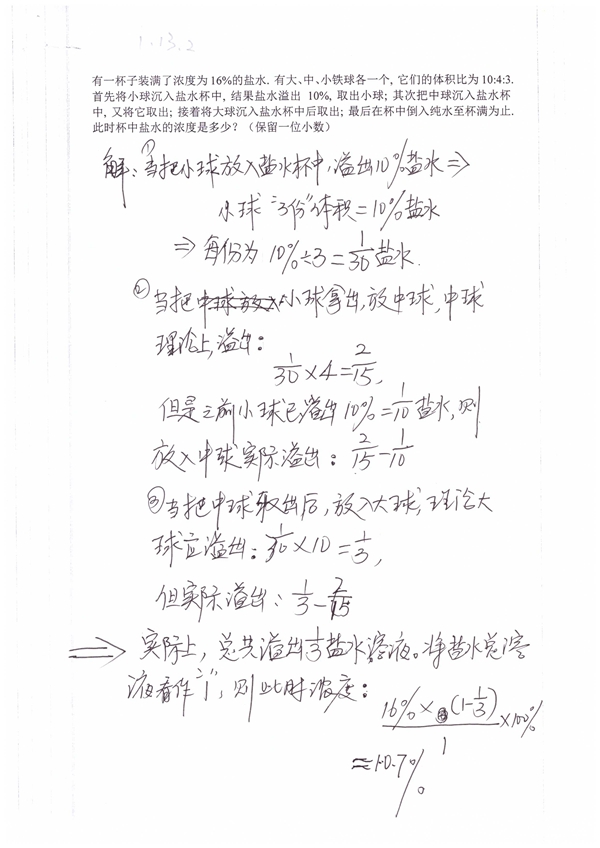 1.13.2
有一杯子装满了浓度为16%的盐水. 有大、中、小铁球各一个, 它们的体积比为 10:4:3.
首先将小球沉入盐水杯中, 结果盐水溢出 10%, 取出小球; 其次把中球沉入盐水杯
中, 又将它取出; 接着将大球沉入盐水杯中后取出; 最后在杯中倒入纯水至杯满为止.
此时杯中盐水的浓度是多少? (保留一位小数)
解: ①当把小球放入盐水杯中, 溢出10%盐水⇒
小球"3份"体积=10%盐水
⇒ 每份为 10%÷3=1/30盐水.
②当把小球拿出, 放中球, 中球
理论上溢出:
1/30×4=2/15,
但是之前小球已溢出10%=1/10盐水, 则
放入中球实际溢出: 2/15-1/10
③当把中球取出后, 放入大球, 理论大
球应溢出: 1/30×10=1/3,
但实际溢出: 1/3-2/15
⇒ 实际上, 总共溢出1/3盐水溶液。将盐水总溶
液看作"1", 则此时浓度:
16%×(1-1/3)/1×100%
≈10.7%